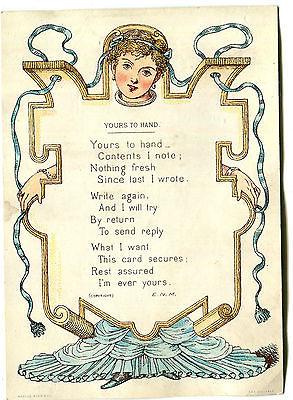 YOURS TO HAND.
Yours to hand—
Contents I note;
Nothing fresh
Since last I wrote.
Write again,
And I will try
By return
To send reply
What I want
This card secures;
Rest assured
I'm ever yours.
(COPYRIGHT) E. N. M.